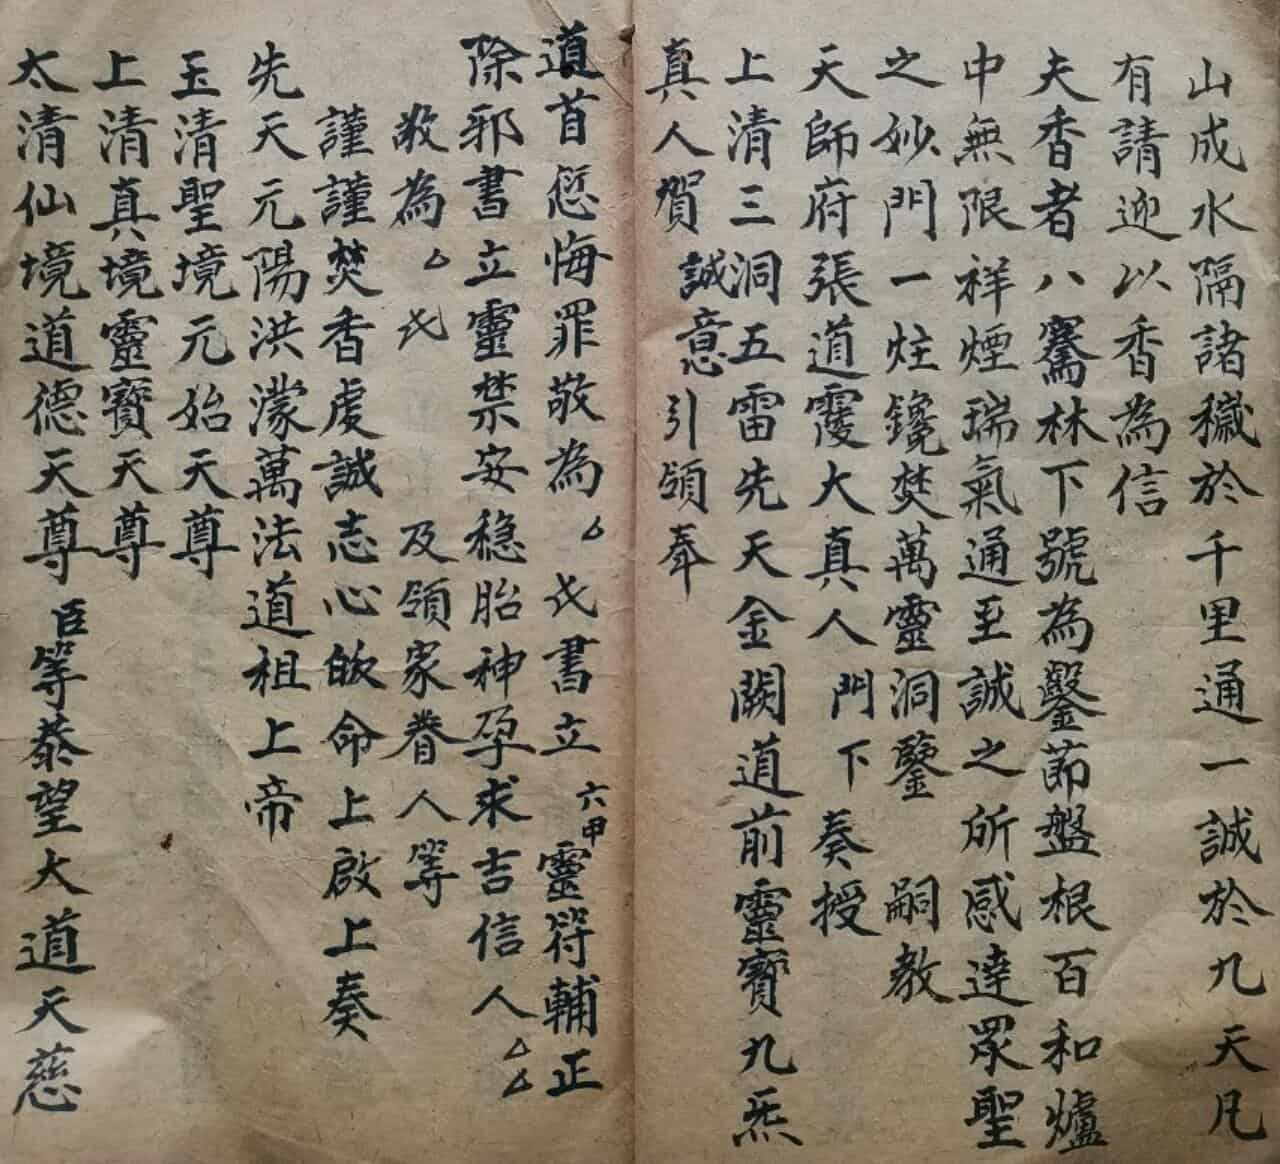 山成水隔諸穢於千里通一誠於九天凡
有請迎以香為信
夫香者八騫林下號為鑿節盤根百和爐
中無限祥煙瑞氣通至誠之所感達眾聖
之妙門一炷鑱焚萬靈洞鑒 嗣教
天師府張道霞大真人門下奏授
上清三洞五雷先天金闕道前靈寶九炁
真人賀 誠意 引領奉
道首愆悔罪敬為△氏書立六甲靈符輔正
除邪書立靈禁安穩胎神孕求吉信人△△
敬為△氏 及領家眷人等
謹謹焚香虔誠志心皈命上啟上奏
先天元陽洪濛萬法道祖上帝
玉清聖境元始天尊
上清真境靈寶天尊
太清仙境道德天尊 臣等恭望大道天慈